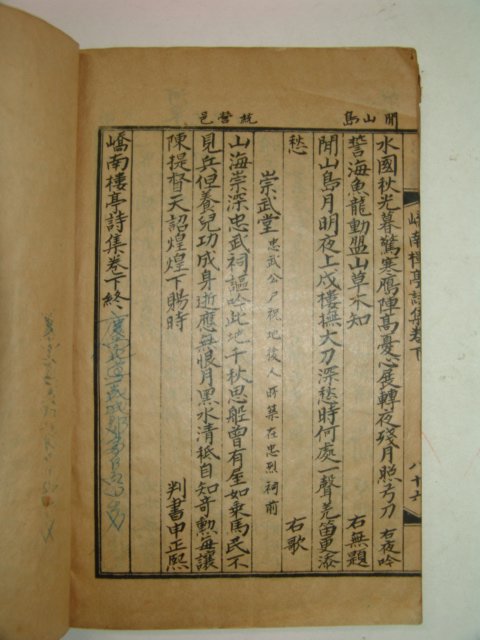 閒山島
統營邑
嶠南樓亭詩集卷下
八十六
水國秋光暮驚寒鴈陣高憂心展轉夜殘月照弓刀 右夜吟
誓海魚龍動盟山草木知 右無題
閒山島月明夜上戍樓撫大刀深愁時何處一聲羌笛更添
愁 右歌
崇武堂 忠武公尸祝地後人所築在忠烈祠前
山海崇深忠武祠謳吟此地千秋思船曾有屋如乘馬民不
見兵但養兒功成身逝應無恨月黑水清秪自知奇勳每讓
陳提督天詔煌煌下賜時 判書申正熙
嶠南樓亭詩集卷下終